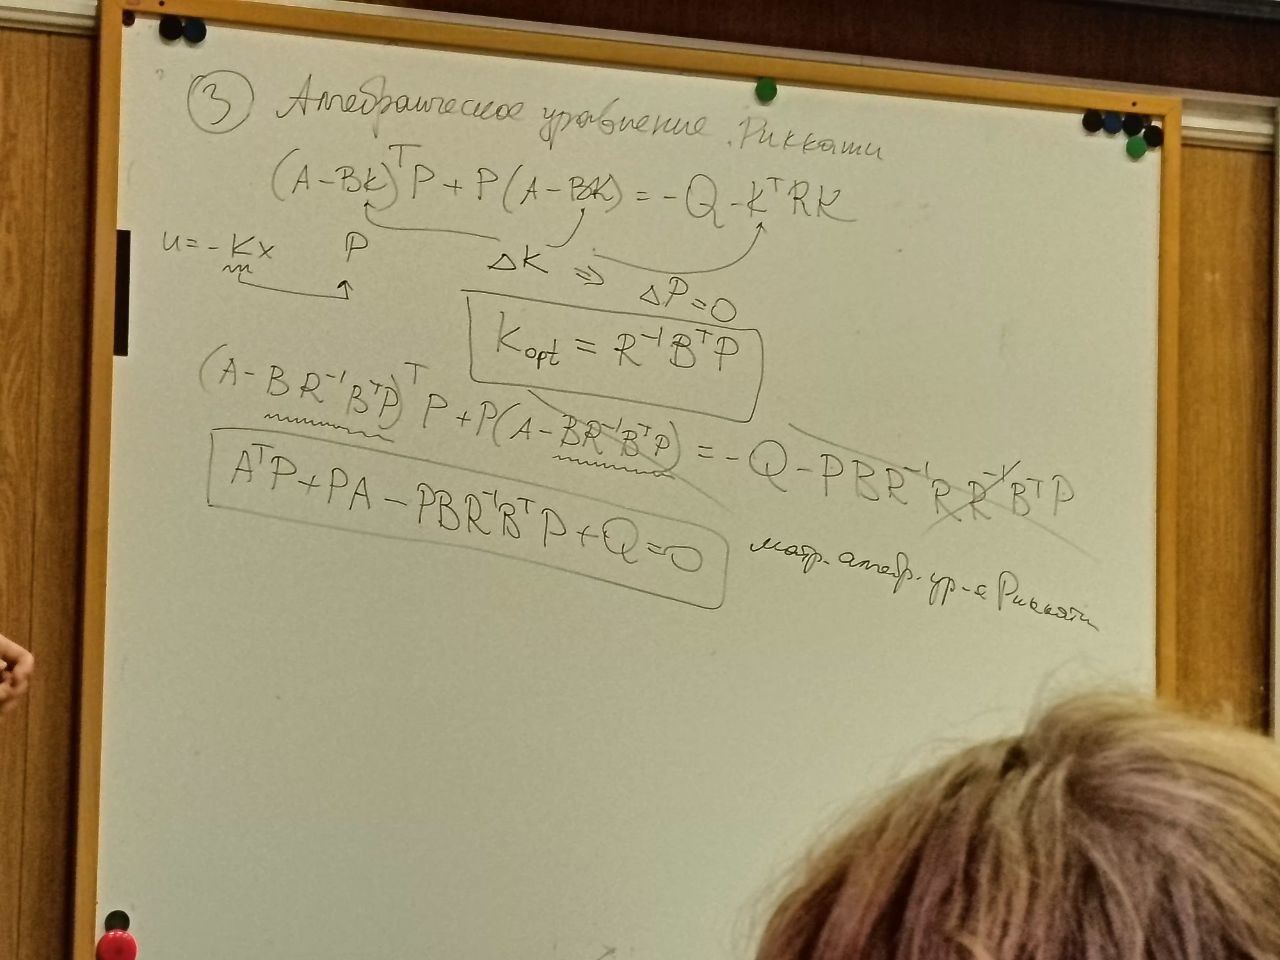 ③ Алгебраическое уравнение Риккати
(A-BK)ᵀP + P(A-BK) = -Q - KᵀRK
u = -Kx P ΔK ⇒ ΔP = 0
K_opt = R⁻¹BᵀP
(A - BR⁻¹BᵀP)ᵀP + P(A - BR⁻¹BᵀP) = -Q - PBR⁻¹RR⁻¹BᵀP
AᵀP + PA - PBR⁻¹BᵀP + Q = 0
матр. алгебр. ур-е Риккати